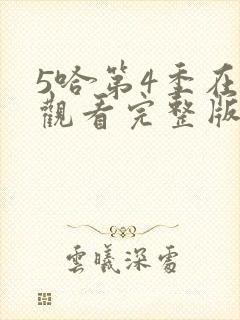 5哈第4季在
觀看完整版
雲曦深處